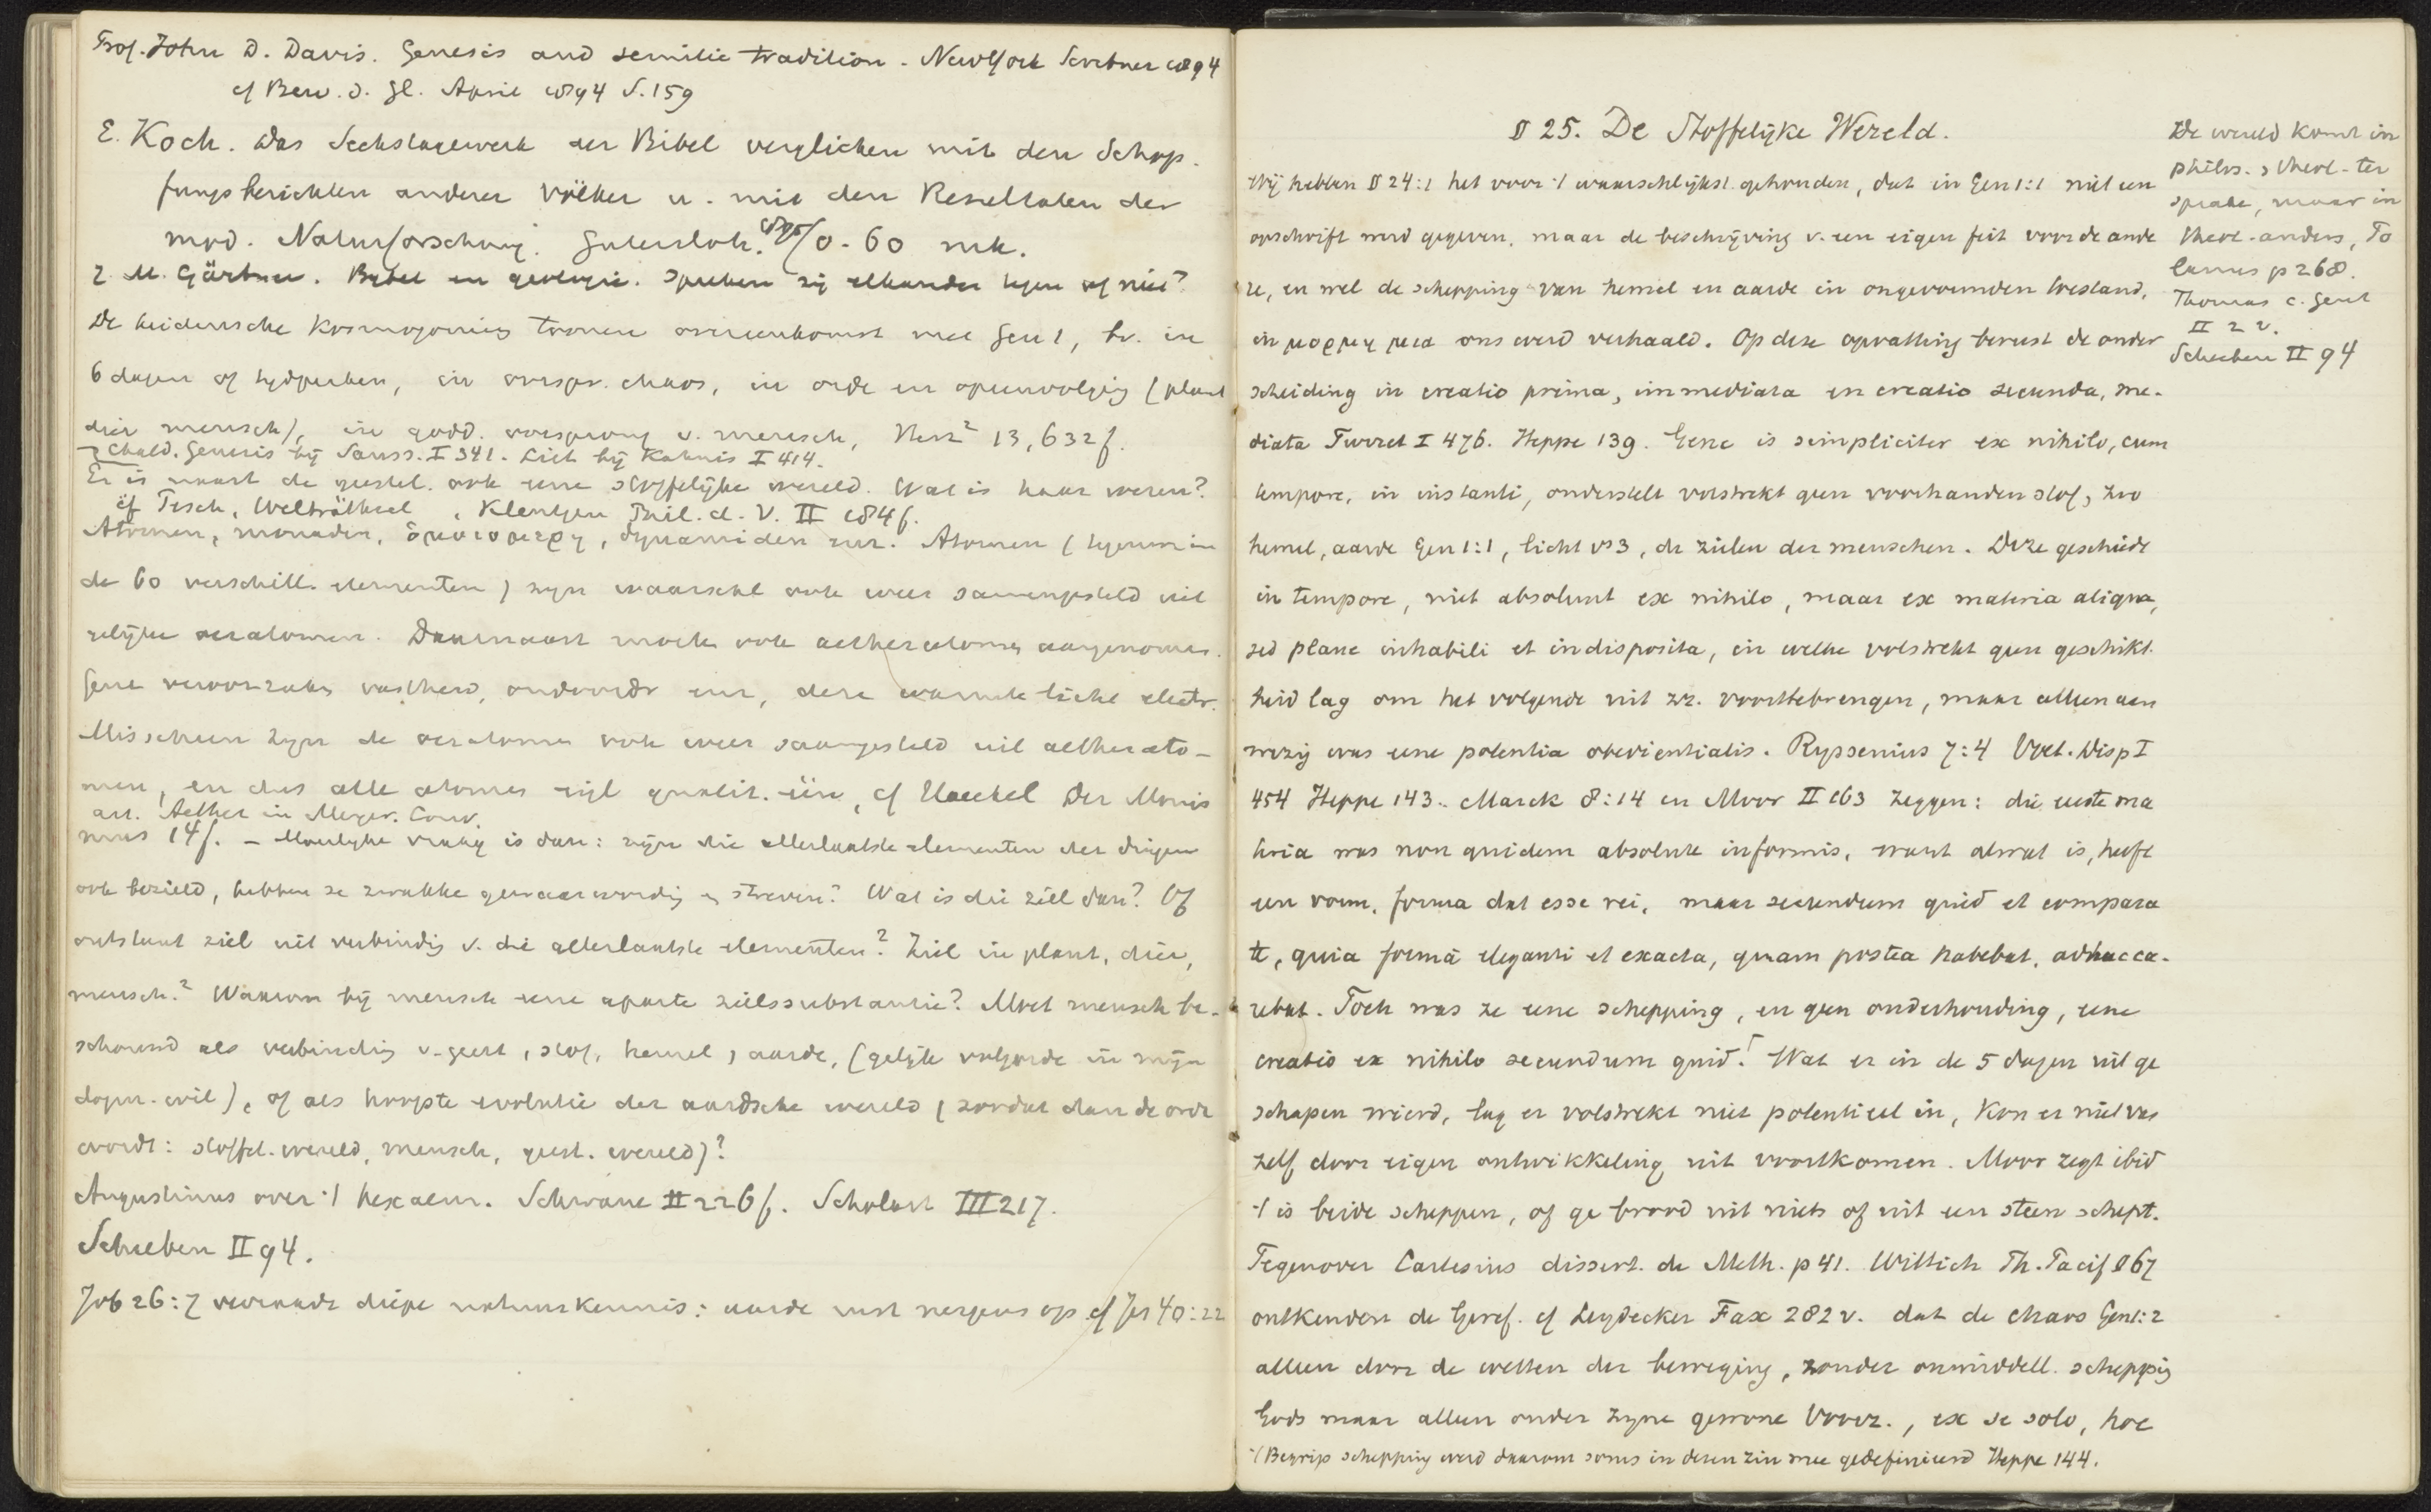 Prof. John D. Davis. Genesis and semitic tradition. New York Scribner 1894
cf Bew. d. Gl. April 1894 S. 159
E. Koch. Das Sechstagewerk der Bibel verglichen mit den Schöp-
fungsberichten anderer Völker u. mit den Resultaten der
mod. Naturforschung. Gütersloh. 0.60 mk.
M. Gärtner. Bybel en geologie. Spreken zij elkander tegen of niet?
De heidensche kosmogonien toonen overeenkomst met Gen 1, bv. in
6 dagen of tydperken, in oorspr. chaos, in orde en opeenvolging (plant
dier mensch), in godd. oorsprong v. mensch, Herz² 13, 632 f.
Chald. Genesis bij Sauss. I 341. Lict bij Kahnis I 414.
Er is naast de geestel. ook eene stoffelijke wereld. Wat is haar wezen?
cf Pesch, Welträthsel, Kleutgen Phil. d. V. II 184 f.
Atomen, monaden, dynamiden enz. Atomen (tegenw. in
de 60 verschill. elementen) zyn waarschl ook weer samengesteld uit
gelijke oeratomen. Daarnaast moeten ook aetheratomen aangenomen.
Gene veroorzaken vastheid, ondoordr enz, deze warmte licht electr.
Misschien zyn de oeratomen ook weer saamgesteld uit aetherato-
men, en dus alle atomen eigl qualit. één, cf Haeckel Der Monis
art. Aether in Meyer. Conv.
mus 14 f. – Moeilyke vraag is dan: zijn die allerlaatste elementen der dingen
ook bezield, hebben ze zwakke gewaarwording en streven? Wat is die ziel dan? Of
ontstaat ziel uit verbinding v. die allerlaatste elementen? Ziel in plant, dier,
mensch? Waarom bij mensch eene aparte zielssubstantie? Moet mensch be-
schouwd als verbinding v. geest, stof, hemel, aarde, (gelijk volgorde in mijn
dogm. wil), of als hoogste evolutie der aardsche wereld (zoodat dan de orde
wordt: stoffel. wereld, mensch, geest. wereld)?
Augustinus over 't hexaem. Schwane II 226 f. Scholast III 217.
Scheeben II 94.
Job 26:7 verraadt diepe natuurkennis: aarde rust nergens op cf Jes 40:22
§ 25. De Stoffelijke Wereld.
Wij hebben § 24:1 het voor 't waarschlijkst gehouden, dat in Gen 1:1 niet een
opschrift werd gegeven, maar de beschrijving v. een eigen feit voor de ande
re, en wel de schepping van hemel en aarde in ongevormden toestand,
in μορφη μια ons werd verhaald. Op deze opvatting berust de onder
scheiding in creatio prima, immediata en creatio secunda, me-
diata Turret I 476. Heppe 139. Gene is simpliciter ex nihilo, cum
tempore, in instanti, onderstelt volstrekt geen voorhanden stof, zoo
hemel, aarde Gen 1:1, licht vs 3, de zielen der menschen. Deze geschiedt
in tempore, niet absoluut ex nihilo, maar ex materia aliqua,
sed plane inhabili et indisposita, in welke volstrekt geen geschikt-
heid lag om het volgende uit zr. voorttebrengen, maar alleen aan
wezig was eene potentia obedientialis. Ryssenius 7:4 Voet. Disp I
454 Heppe 143. Marck 8:14 en Moor II 163 zeggen: die eerste ma
teria was non quidem absolute informis, want al wat is, heeft
een vorm, forma dat esse rei, maar secundum quid et compara
te, quia formâ eleganti et exacta, quam postea habebat, adhuc ca-
rebat. Toch was ze eene schepping, en geen onderhouding, eene
creatio ex nihilo secundum quid. Wat er in de 5 dagen uit ge
schapen wierd, lag er volstrekt niet potentieel in, kon er niet van
zelf door eigen ontwikkeling uit voortkomen. Moor zegt ibid
't is beide scheppen, of ge brood uit niets of uit een steen schept.
Tegenover Cartesius dissert. de Meth. p 41. Wittich Th. Pacif § 67
ontkenden de Geref. cf Leydecker Fax 282 v. dat de chaos Gen 1:2
alleen door de wetten der beweging, zonder onmiddell. schepping
Gods maar alleen onder zyne gewone Voorz., ex se solo, hoc
'/ Begrip schepping werd daarom soms in dezen zin mee gedefinieerd Heppe 144.
De wereld komt in
philos. & theol. ter
sprake, maar in
theol. anders, Po
lanus p 268.
Thomas c. Gent
II 2 v.
Scheeben II 94